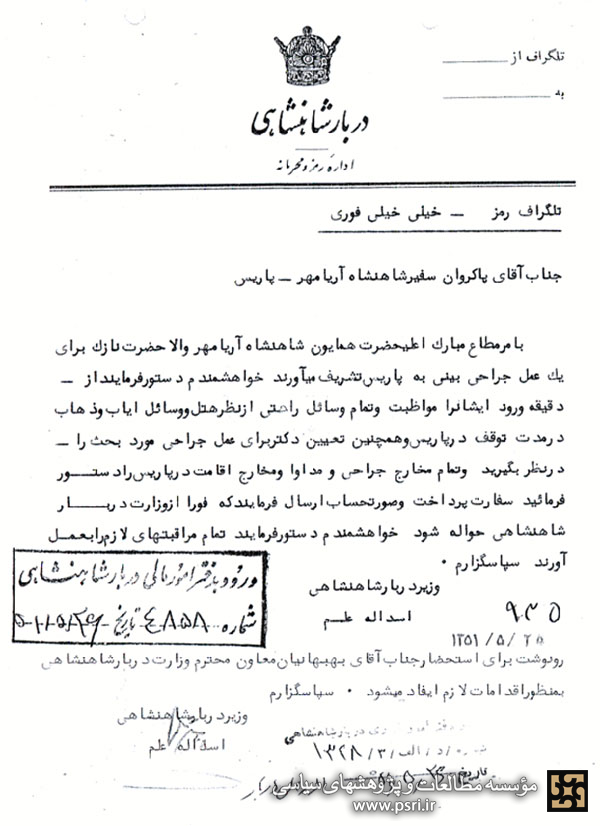 تلگراف از
به
دربار شاهنشاهی
اداره رمز و محرمانه
تلگراف رمز – خیلی خیلی فوری
جناب آقای پاکروان سفیر شاهنشاه آریامهر – پاریس
بامر مطاع مبارک اعلیحضرت همایون شاهنشاه آریامهر والاحضرت نازک برای
یک عمل جراحی بینی به پاریس تشریف میآورند خواهشمندم دستور فرمایند از –
دقیقه ورود ایشانرا مواظبت وتمام وسائل راحتی ازنظر هتل ووسائل ایاب وذهاب
درمدت توقف درپاریس وهمچنین تعیین دکتر برای عمل جراحی مورد بحث را –
درنظر بگیرید وتمام مخارج جراحی و مداوا ومخارج اقامت درپاریس را دستور
فرمائید سفارت پرداخت وصورتحساب ارسال فرمایند که فورا ازوزارت دربار
شاهنشاهی حواله شود خواهشمندم دستور فرمایند تمام مراقبتهای لازم رابعمل
آورند سپاسگزارم .
وزیر دربار شاهنشاهی
اسداله علم
۹۳۵
۱۳۵۱/۵/۲۵
ورود بدفتر امور مالی دربار شاهنشاهی
شماره ۴۸۵۸ تاریخ
رونوشت برای استحضار جناب آقای بهبهانیان معاون محترم وزارت دربار شاهنشاهی
بمنظور اقدامات لازم ایفاد میشود . سپاسگزارم
وزیر دربار شاهنشاهی
اسداله علم
دربار شاهنشاهی
۱۳۲۸/۳/الف/د
تاریخ
مؤسسه مطالعات و پژوهشهای سیاسی
www.psri.ir